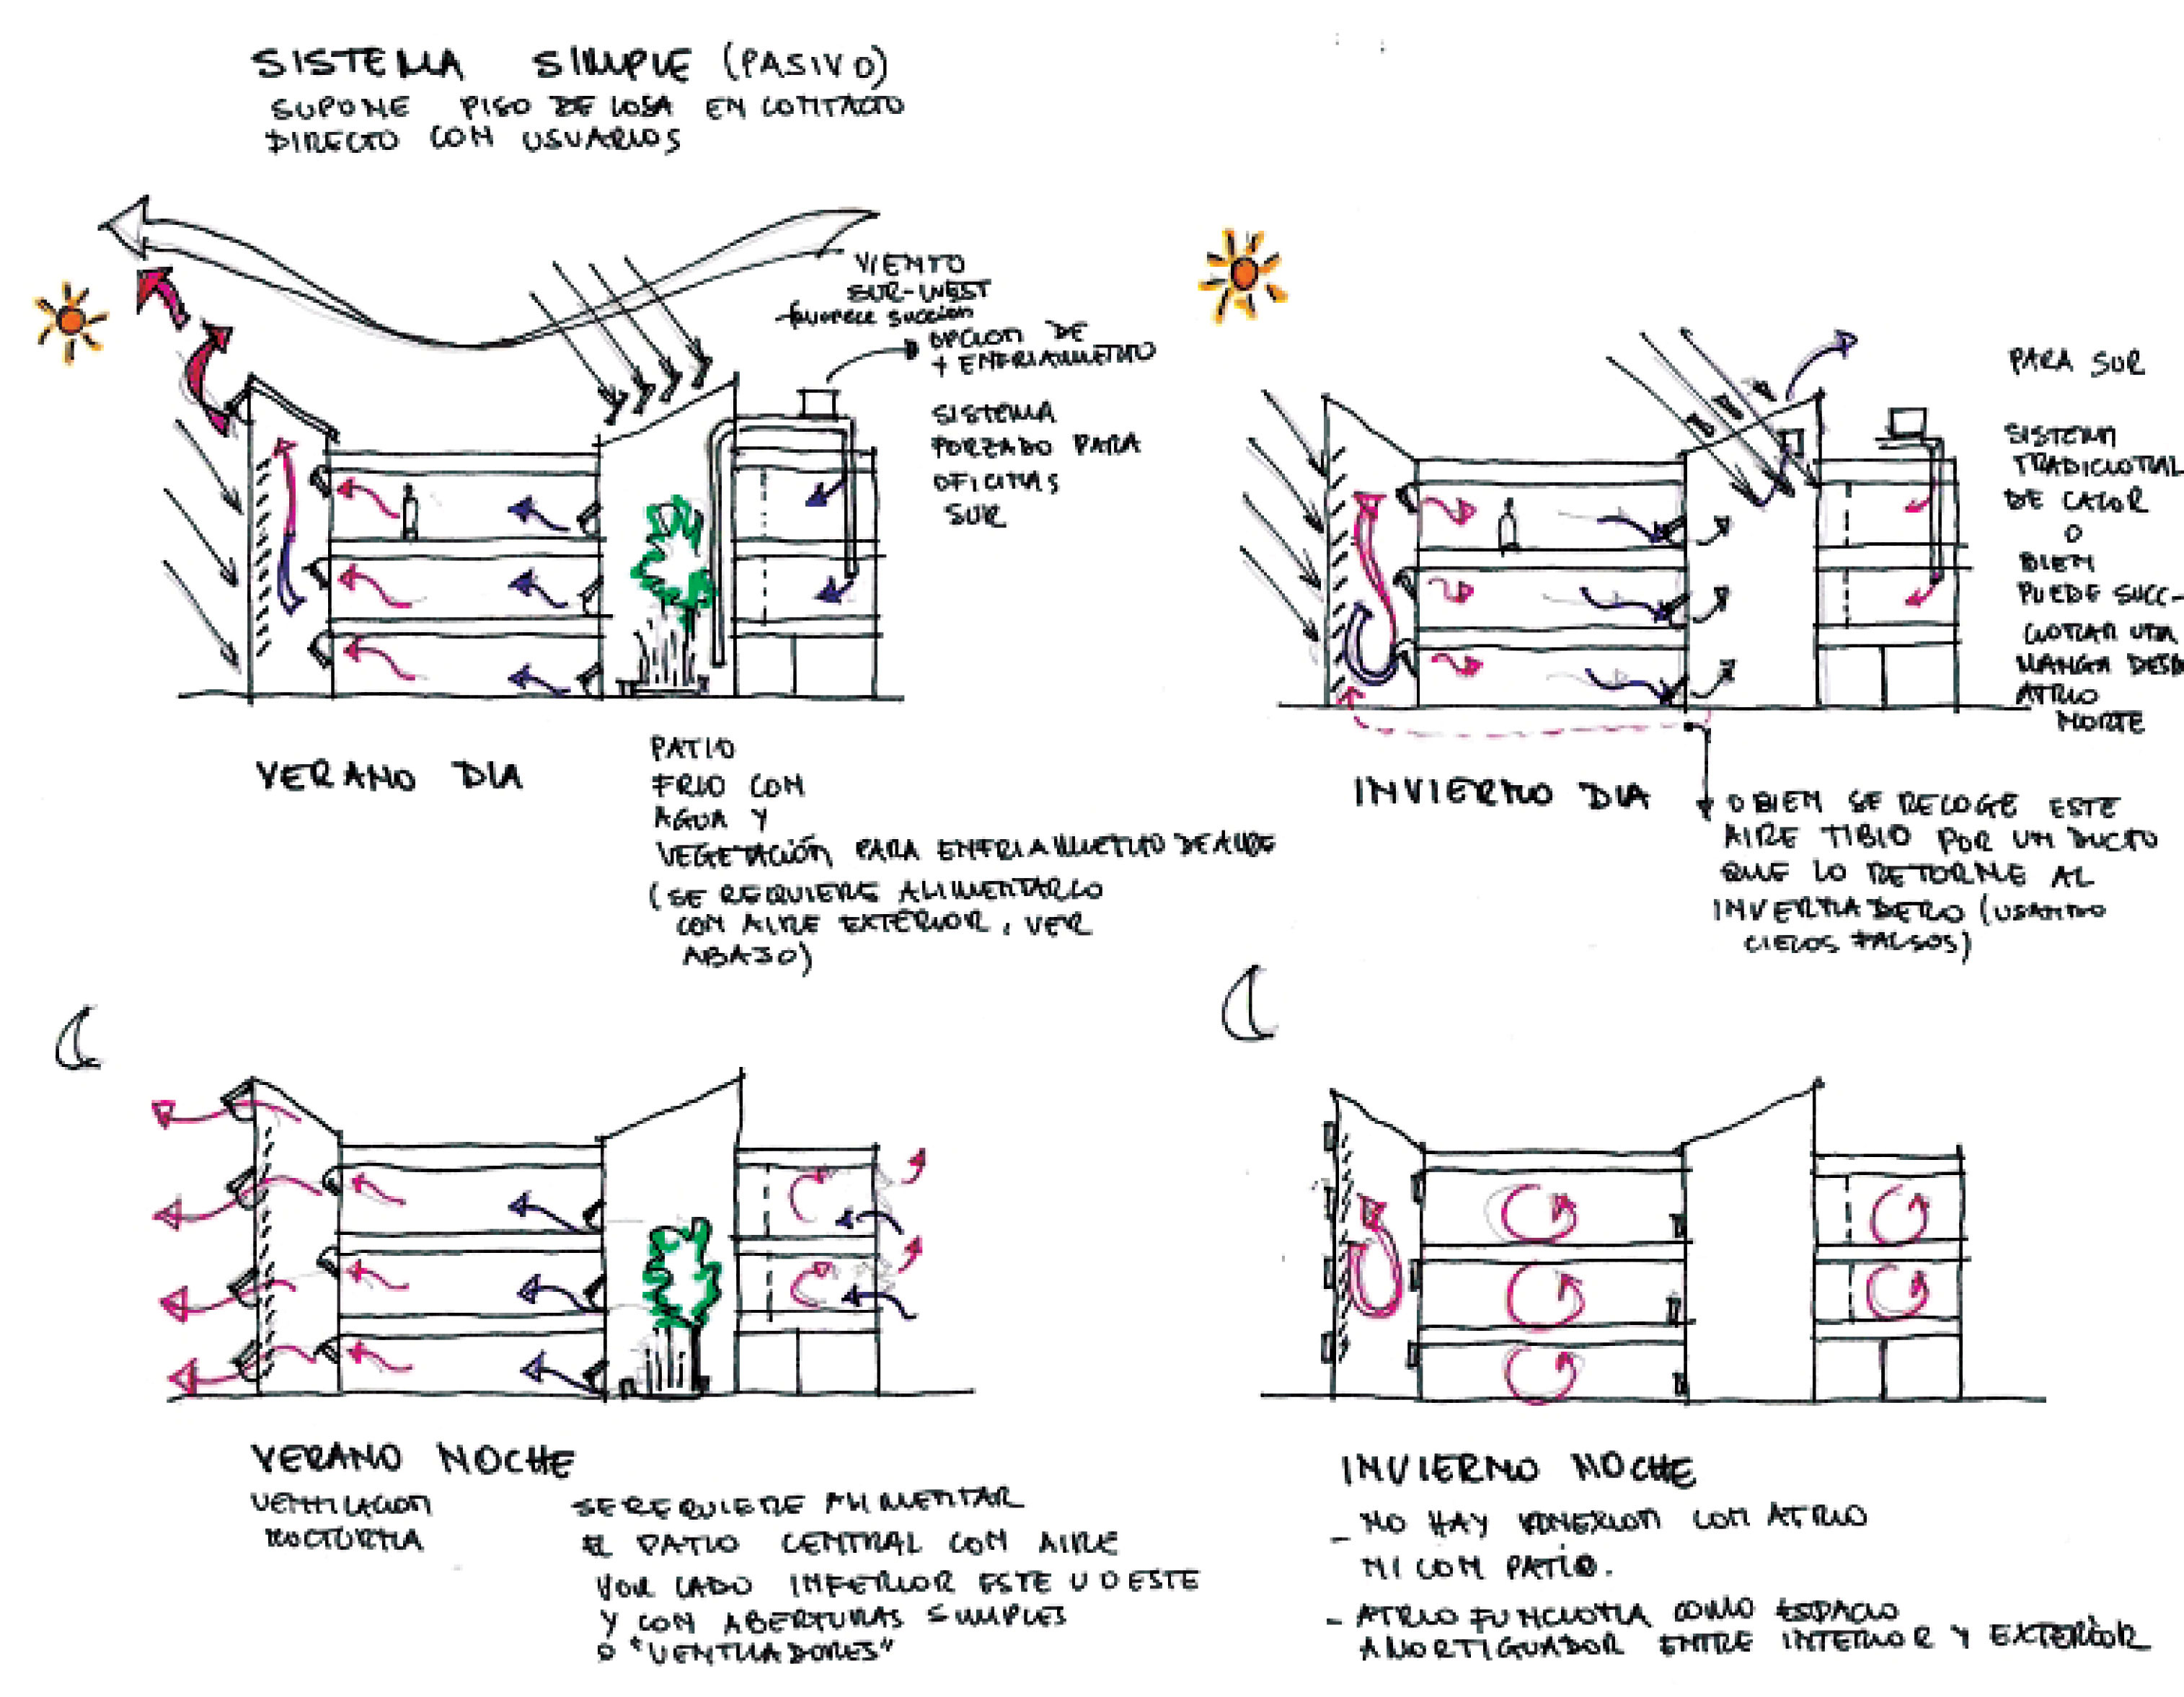 SISTEMA SIMPLE (PASIVO)
SUPONE PISO DE LOSA EN CONTACTO
DIRECTO CON USUARIOS
VIENTO
SUR-WEST
favorece succion
OPCION DE
+ ENFRIAMIENTO
SISTEMA
FORZADO PARA
OFICINAS
SUR
VERANO DIA
PATIO
FRIO CON
AGUA Y
VEGETACIÓN PARA ENFRIAMIENTO DE AIRE
(SE REQUIERE ALIMENTARLO
CON AIRE EXTERIOR, VER
ABAJO)
PARA SUR
SISTEMA
TRADICIONAL
DE CALOR
O
BIEN
PUEDE SUCC-
CIONAR UNA
MANGA DESD
ATRIO
NORTE
INVIERNO DIA
O BIEN SE RECOGE ESTE
AIRE TIBIO POR UN DUCTO
QUE LO RETORNE AL
INVERNADERO (USANDO
CIELOS FALSOS)
VERANO NOCHE
VENTILACION
NOCTURNA
SE REQUIERE ALIMENTAR
EL PATIO CENTRAL CON AIRE
POR LADO INFERIOR ESTE U OESTE
Y CON ABERTURAS SIMPLES
O "VENTILADORES"
INVIERNO NOCHE
- NO HAY CONEXION CON ATRIO
NI CON PATIO.
- ATRIO FUNCIONA COMO ESPACIO
AMORTIGUADOR ENTRE INTERIOR Y EXTERIOR